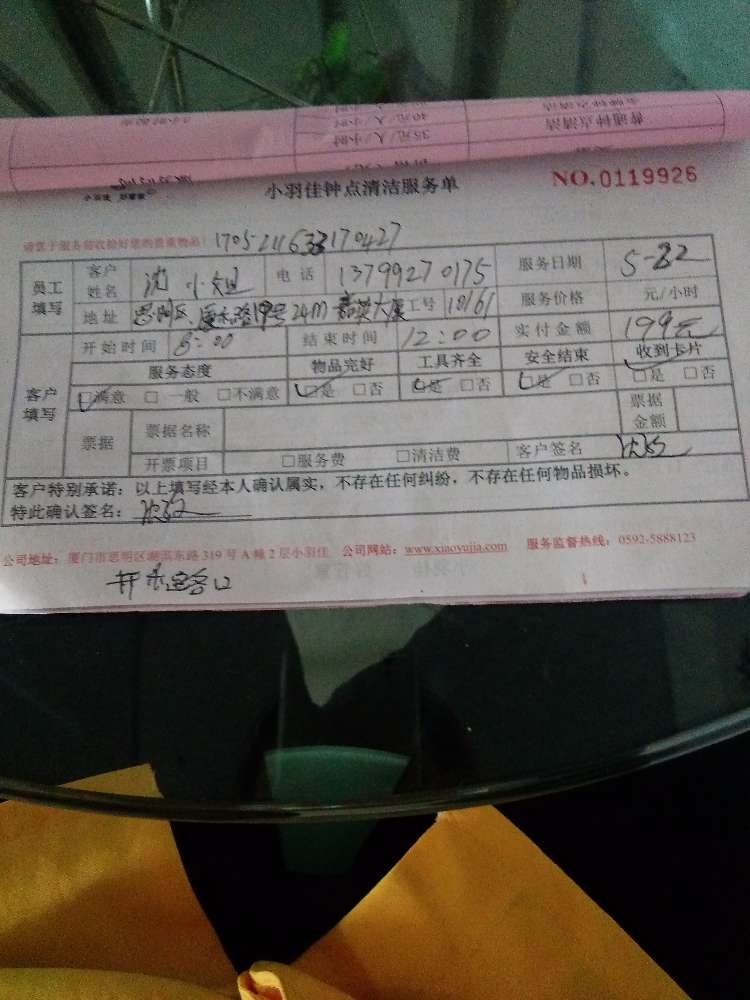 普通钟点清洁
35元/人/小时
40元/人/小时
小羽佳钟点清洁服务单
NO.0119926
请您于服务前收捡好您的贵重物品! 1705211633170427
员工填写 客户姓名 沈小姐 电话 13799270175 服务日期 5-22
地址 思明区 嘉英大厦 工号 10161 服务价格 元/小时
开始时间 8:00 结束时间 12:00 实付金额 199元
客户填写 服务态度 物品完好 工具齐全 安全结束 收到卡片
□满意 □一般 □不满意 □是 □否 □是 □否 □是 □否 □是 □否
票据 票据名称 票据金额
开票项目 □服务费 □清洁费 客户签名
客户特别承诺：以上填写经本人确认属实，不存在任何纠纷，不存在任何物品损坏。
特此确认签名：
公司地址：厦门市思明区湖滨东路 319 号 A 幢 2 层小羽佳 公司网站：www.xiaoyujia.com 服务监督热线：0592-5888123